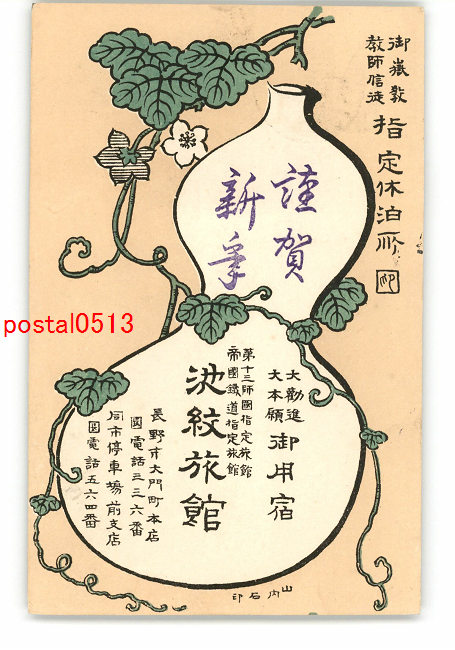 御嶽教
教師信徒
指定休泊所
印
謹賀
新年
大勧進
大本願
御用宿
第十三師團指定旅館
帝國鐵道指定旅館
池紋旅館
長野市大門町本店
圓電話三三六番
同市停車場前支店
圓電話五六四番
山内石印
postal0513